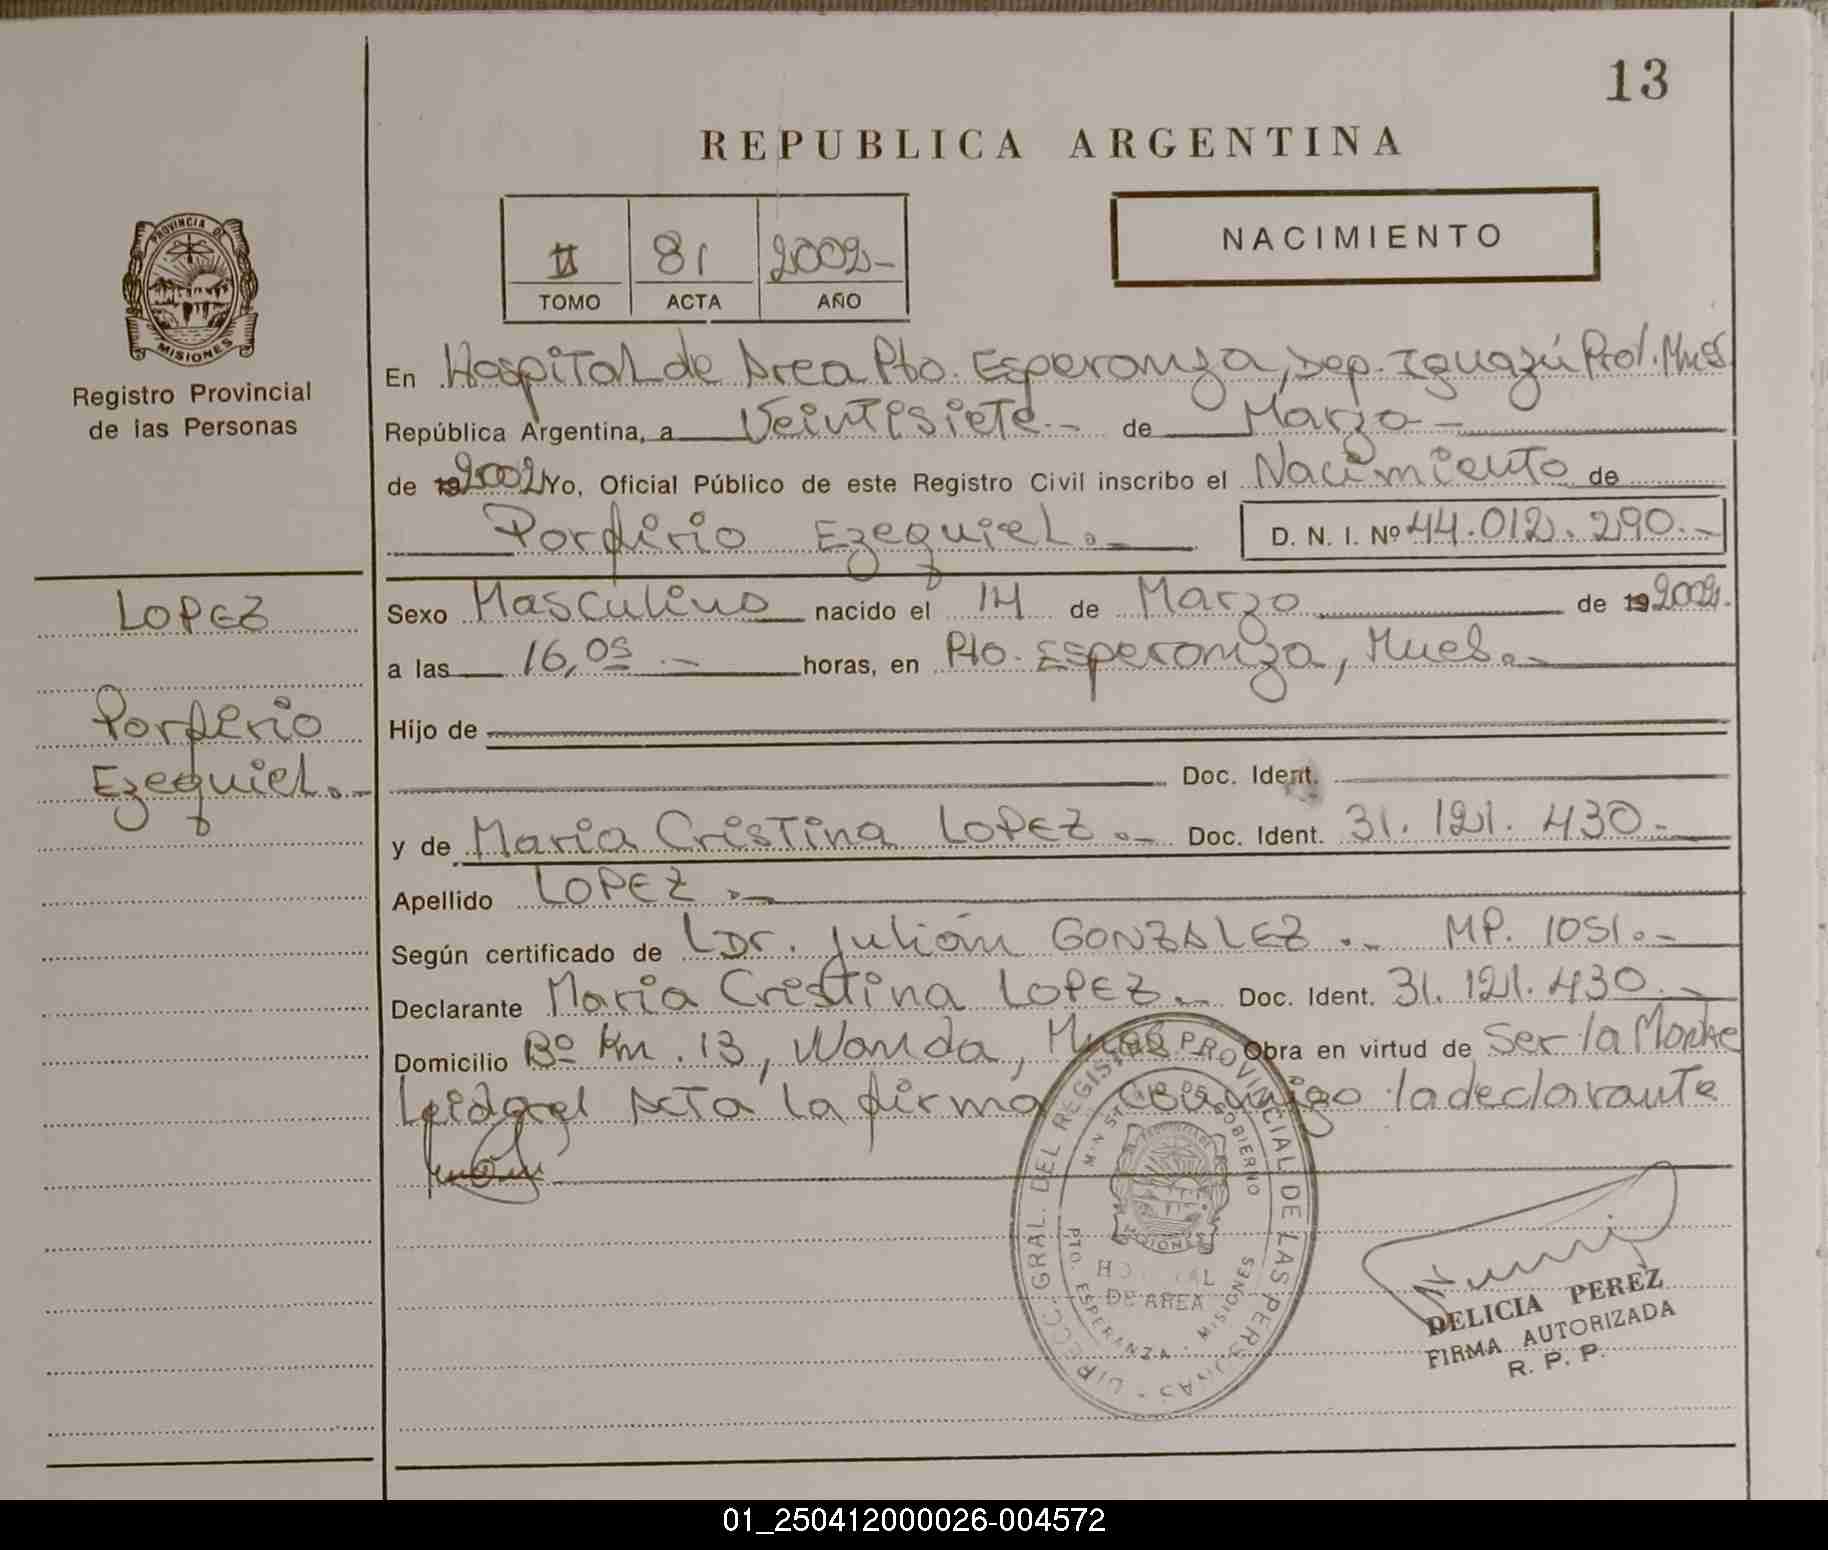 13
REPUBLICA ARGENTINA
PROVINCIA DE
MISIONES
Registro Provincial
de las Personas
II 81 2002-
TOMO ACTA AÑO
NACIMIENTO
En Hospital de Area Pto. Esperanza, Dep. Iguazú
República Argentina, a Veintisiete.- de Marzo-
de 192002 Yo, Oficial Público de este Registro Civil inscribo el Nacimiento de
Porfirio Ezequiel.- D. N. I. Nº 44.012.290.-
LOPEZ
Porfirio
Ezequiel.-
Sexo Masculino nacido el 14 de Marzo de 192002.
a las 16,05.- horas, en Pto. Esperanza, Mnes.-
Hijo de
Doc. Ident.
y de Maria Cristina LOPEZ.- Doc. Ident. 31.121.430.-
Apellido LOPEZ.-
Según certificado de Dr. Julián GONZALEZ.- MP. 1051.-
Declarante Maria Cristina LOPEZ.- Doc. Ident. 31.121.430.-
Domicilio Bº Km. 13, Wanda, Obra en virtud de Ser la Madre
Leida el Acta la firma conmigo la declarante
DIRECC. GRAL. DEL REGISTRO PROVINCIAL DE LAS PERSONAS
MINISTERIO DE GOBIERNO
MISIONES
HOSPITAL
DE AREA
PTO. ESPERANZA - MISIONES
DELICIA PEREZ
FIRMA AUTORIZADA
R. P. P.
01_250412000026-004572